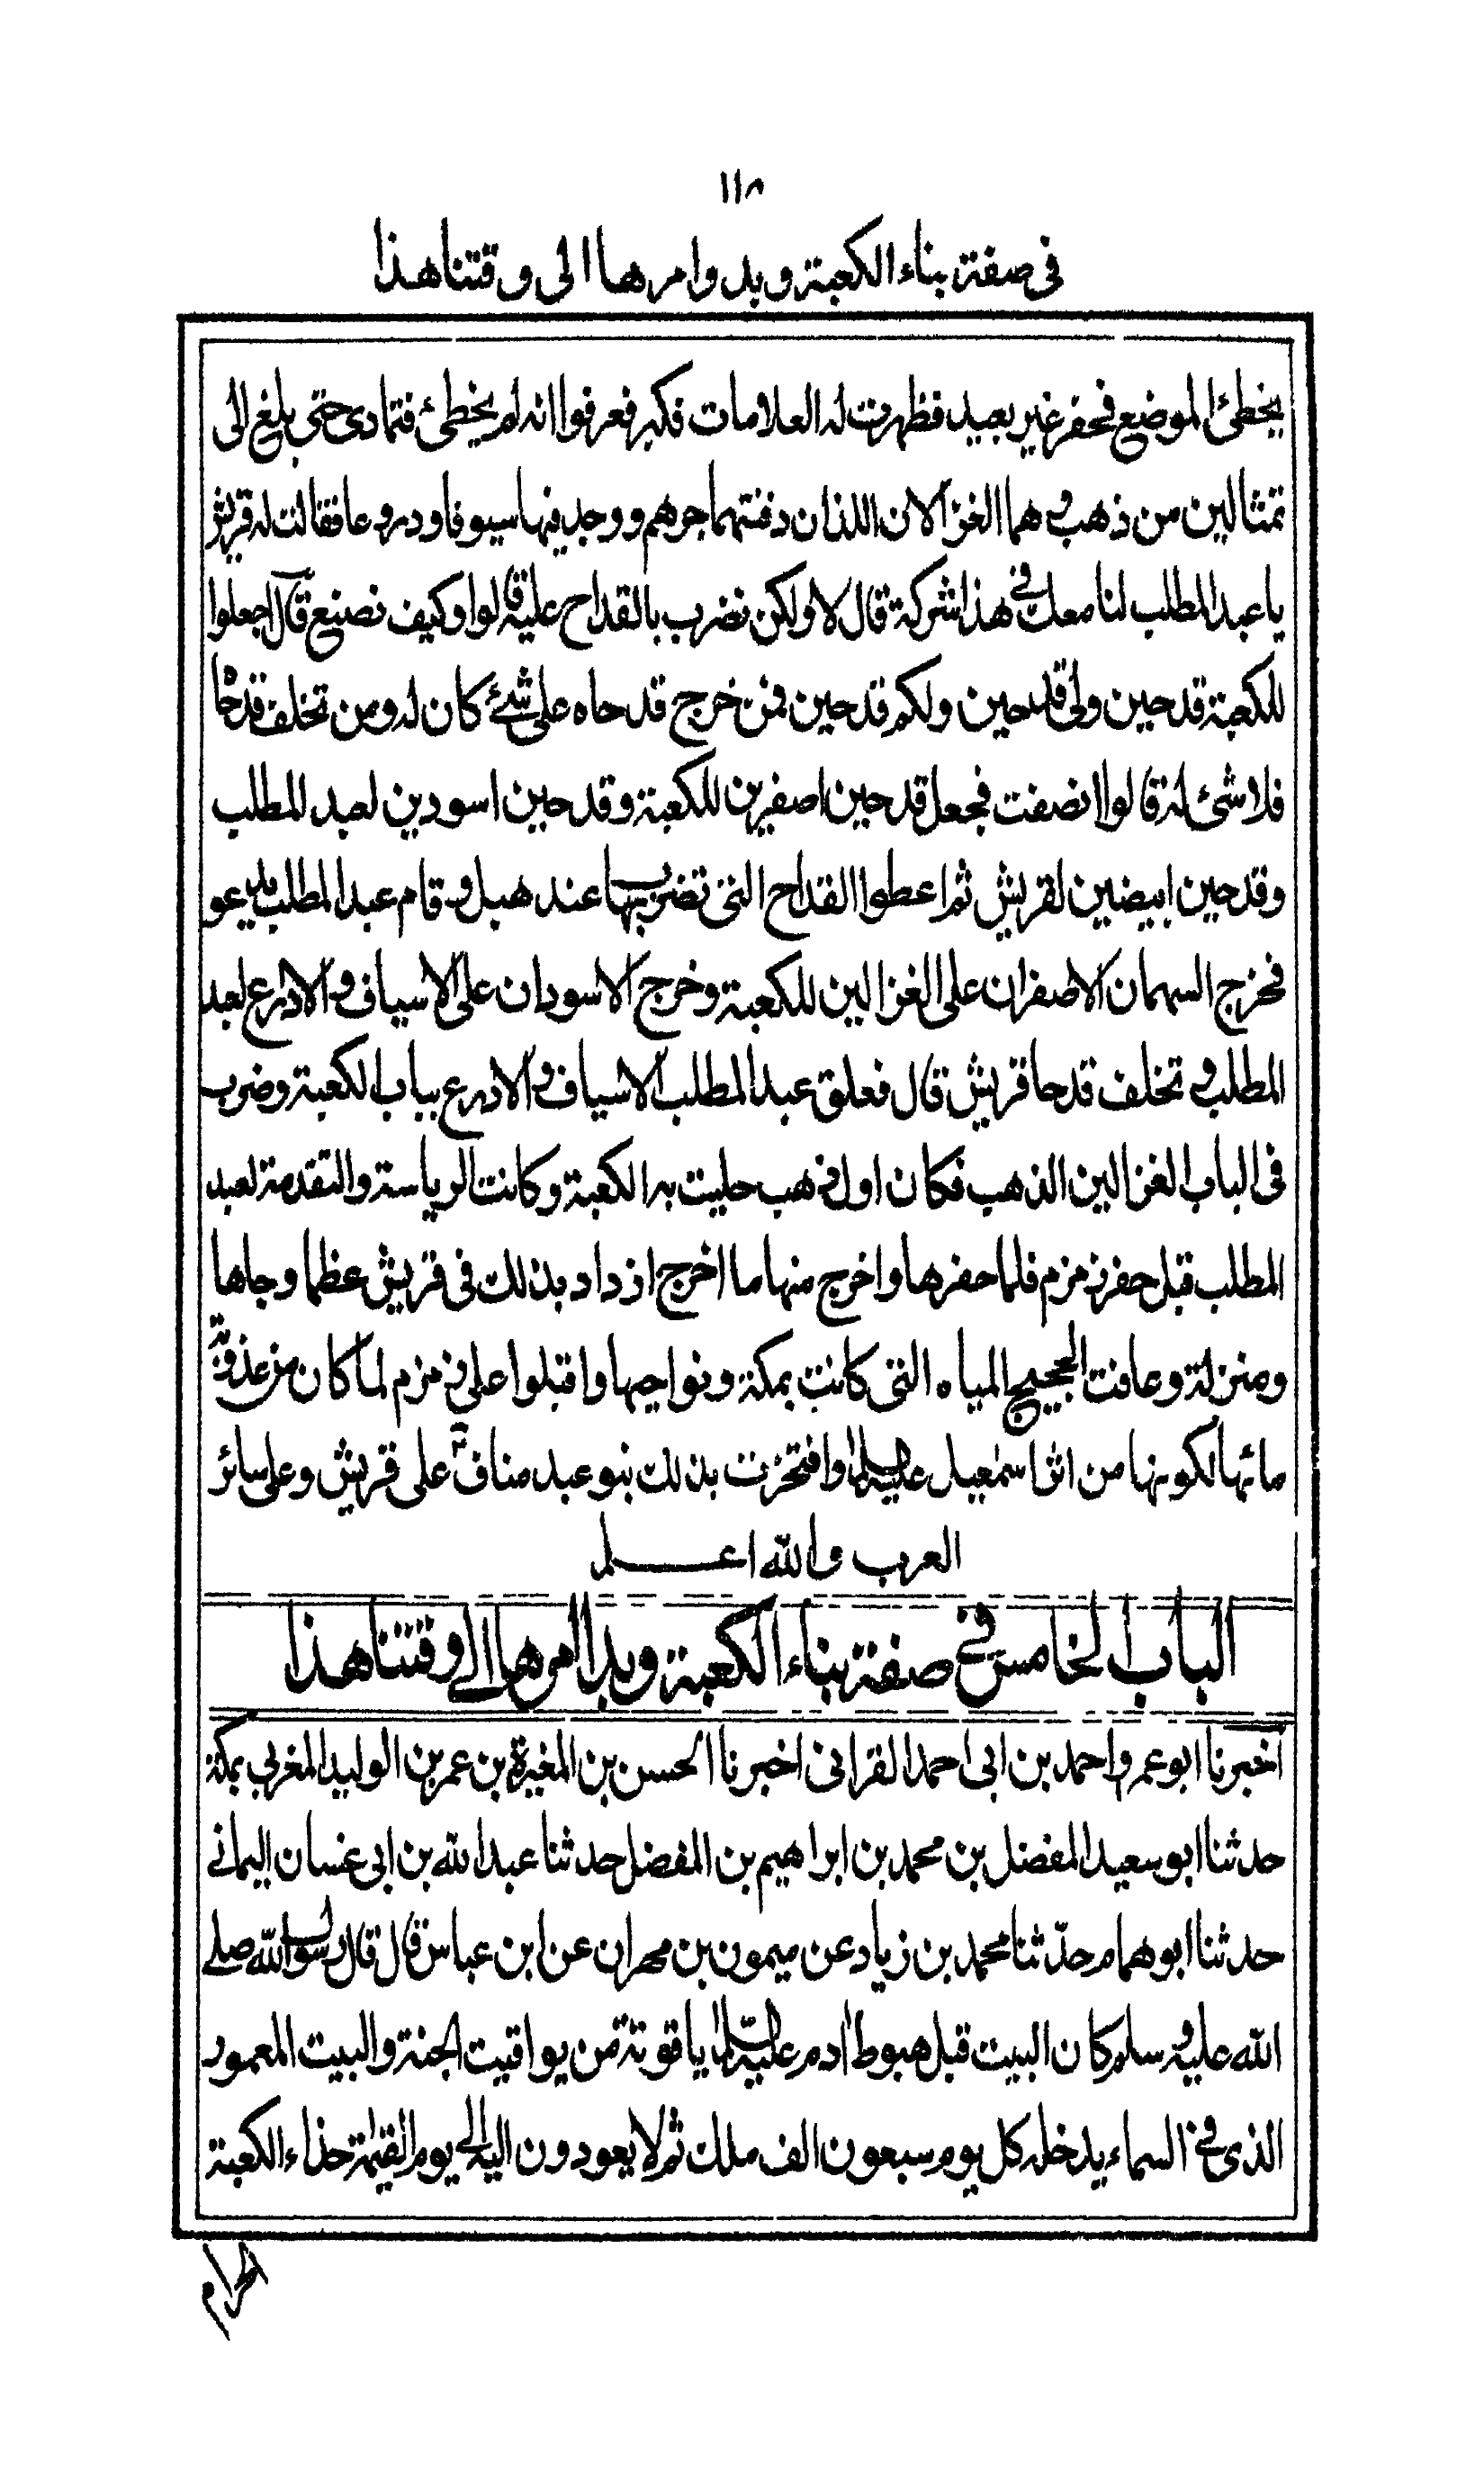 ١١٨
في صفة بناء الكعبة وبدوامرها الى وقتنا هذا
يخطئ الموضع فحفر غير بعيد فظهرت له العلامات فكبر فعرفوا انه لم يخطئ فتمادى حتى بلغ الى
تمثالين من ذهب وهما الغزالان اللذان دفنتهما جرهم ووجد فيها سيوفا ودروعا فقالت له قريش
يا عبد المطلب لنا معك في هذا شركة قال لا ولكن نضرب بالقداح عليه قالوا وكيف نصنع قال اجعلوا
للكعبة قدحين ولى قدحين ولكم قدحين فمن خرج قدحاه على شئ كان له ومن تخلف قدحاه
فلا شئ له قالوا انصفت فجعل قدحين اصفرين للكعبة وقدحين اسودين لعبد المطلب
وقدحين ابيضين لقريش ثم اعطوا القداح التى تضرب بها عند هبل وقام عبد المطلب يدعو
فخرج السهمان الاصفران على الغزالين للكعبة وخرج الاسودان على الاسياف والادرع لعبد
المطلب وتخلف قدحا قريش قال فعلق عبد المطلب الاسياف والادرع بباب الكعبة وضرب
فى الباب الغزالين الذهب فكان اول ذهب حليت به الكعبة وكانت الرياسة والتقدمة لعبد
المطلب قبل حفر زمزم فلما حفرها واخرج منها ما اخرج ازداد بذلك فى قريش عظما وجاها
ومنزلة وعافت الحجيج المياه التى كانت بمكة ونواحيها واقبلوا على زمزم لما كان من عذوبة
مائها لكونها من اثر اسمٰعيل عليه السلام وافتخرت بذلك بنو عبد مناف على قريش وعلى سائر
العرب والله اعلم
الباب الخامس في صفة بناء الكعبة وبدا امرها الى وقتنا هذا
اخبرنا ابو عمرو احمد بن ابى احمد الفراتى اخبرنا الحسن بن المغيرة بن عمر بن الوليد المغربي بمكة
حدثنا ابو سعيد المفضل بن محمد بن ابراهيم بن المفضل حدثنا عبد الله بن ابى غسان اليمانى
حدثنا ابو همام حدّثنا محمد بن زياد عن ميمون بن مهران عن ابن عباس قال قال رسول الله صلى
الله عليه وسلم كان البيت قبل هبوط اٰدم عليه السّلام ياقوتة من يواقيت الجنة والبيت المعمور
الذى فى السماء يدخله كل يوم سبعون الف ملك ثم لا يعودون اليه الى يوم القيٰمة حذاء الكعبة
الحرام